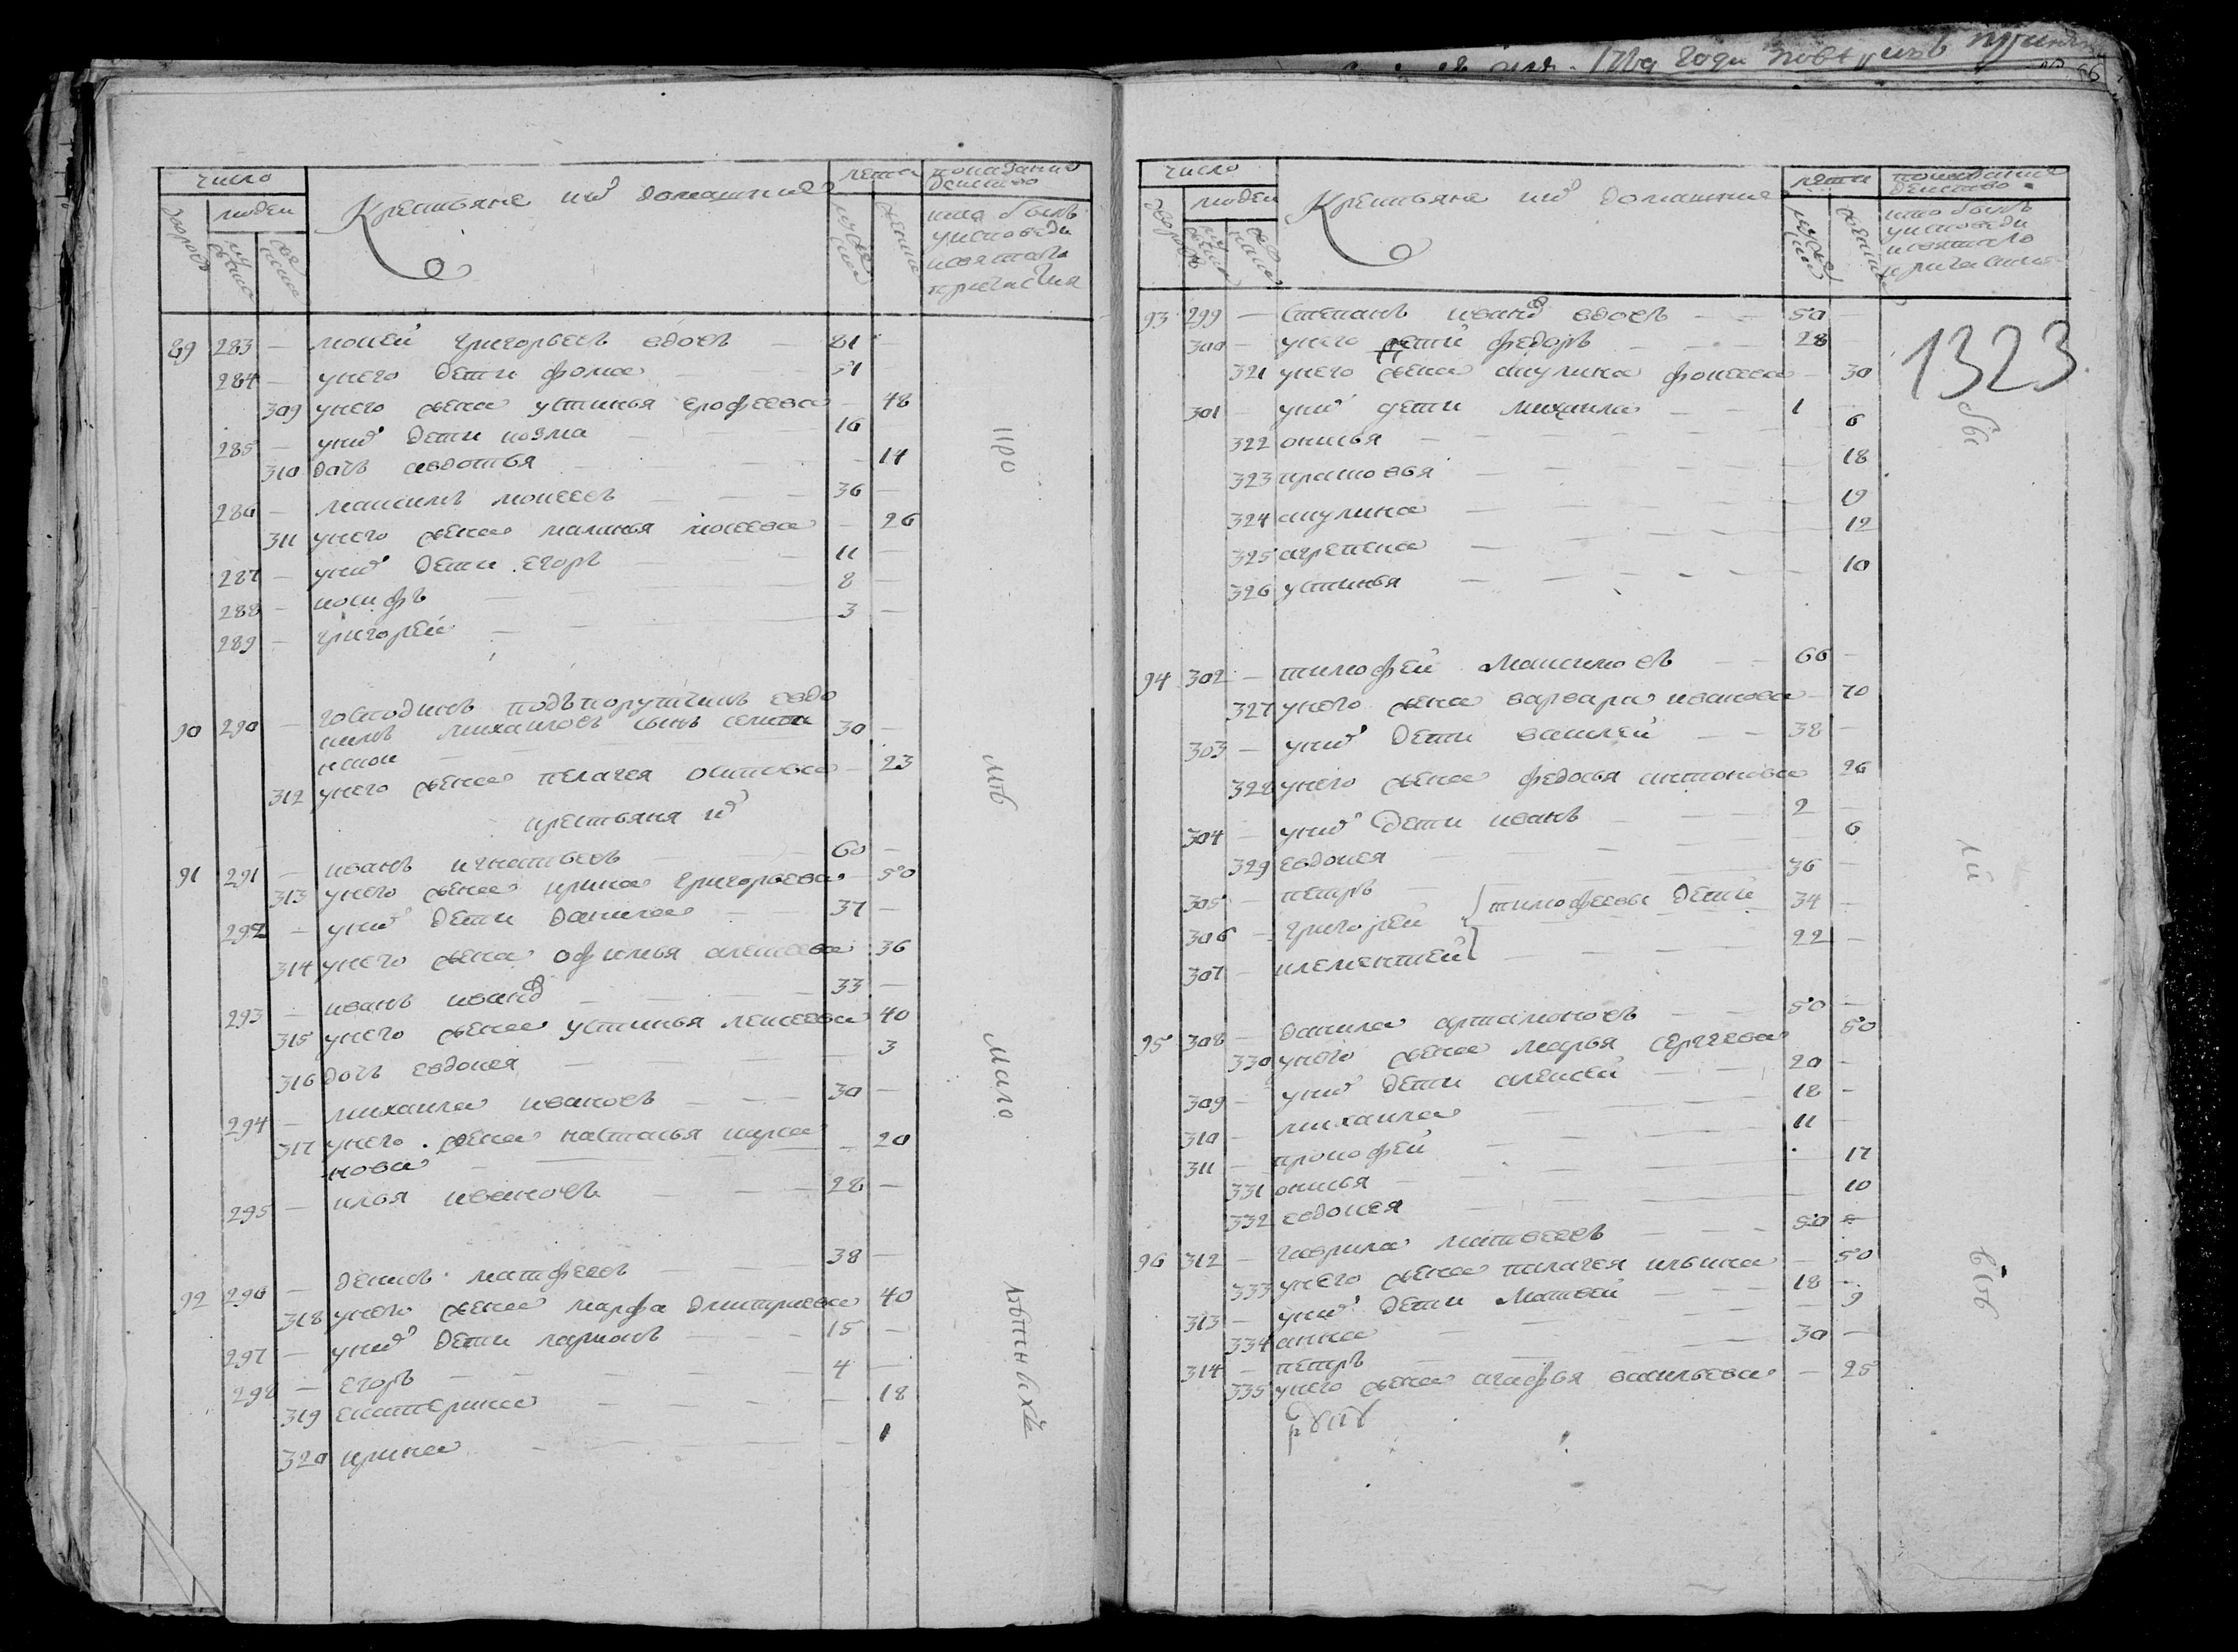 число
людеи
дворовъ
Крестьяне ихъ домашние
лета
мужеска
женска
показание
действо
кто былъ
уисповеди
исвятаго
причастия
89 283 — моисей григорьевъ вдовъ — 81 —
284 — унего дети фома — 51
309 унего жена устинья ерофеева — 48
285 — унихъ дети козма — 16
310 дочь авдотья — 14
286 — максимъ моисеевъ — 36 —
311 унего жена маланья моисеева — 26
287 — унихъ дети егоръ — 11 —
288 — иосифъ — 8 —
289 — григорей — 3 —
90 290 — господинъ подъпорутчикъ евдо
кимъ михаиловъ сынъ 30 —
312 унего жена пелагея осипова — 23
крестьяня ихъ
91 291 — иванъ игнатьевъ — 60 —
313 унего жена ирина григорьева — 50
292 — унихъ дети данила — 37 —
314 унего жена офимья алексеева 36
293 — иванъ ивановъ — 33 —
315 унего жена устинья алексеева 40
316 дочь евдокея — 3
294 — михаила ивановъ — 30 —
317 унего жена настасья кирса
нова — 20
295 — илья ивановъ — 28 —
92 296 — денисъ матфеевъ — 38 —
318 унего жена марфа дмитриева 40
297 — унихъ дети ларионъ — 15 —
298 — егоръ — 4 —
319 екатерина — 18
320 ирина — 1
про
мъ
мало
лѣтныхъ
число
людеи
дворовъ
мужеска
женска
Крестьяне ихъ домашние
лета
мужеска
женска
показание
действо
кто былъ
уисповеди
исвятаго
причастия
1323
93 299 — степанъ ивановъ вдовъ — 50
300 — унего дети федоръ — 28
321 унего жена акулина фокеева — 30
301 — унихъ дети михаила — 1 —
322 онисья — 6
323 прасковья — 18
324 акулина — 19
325 агрепена — 12
326 устинья — 10
94 302 — тимофей максимовъ — 66 —
327 унего жена варвара иванова — 70
303 — унихъ дети василей — 38 —
328 унего жена федосья антонова 26
304 — унихъ дети иванъ — 2 —
329 евдокея — 6
305 — петръ — 36 —
306 — григорей } тимофеевы дети 34 —
307 — клементей — 22 —
95 308 — данила артамоновъ — 50 —
330 унего жена марья сергеева 50
309 — унихъ дети алексей — 20 —
310 — михаила — 18 —
311 — прокофей — 11 —
331 онисья — 17
332 евдокея — 10
96 312 — гаврила матвеевъ — 50 —
333 унего жена пилагея ильина — 50
313 — унихъ дети матвей — 18 —
334 анна — 9
314 — петръ — 30 —
335 унего жена агафья васильева — 25